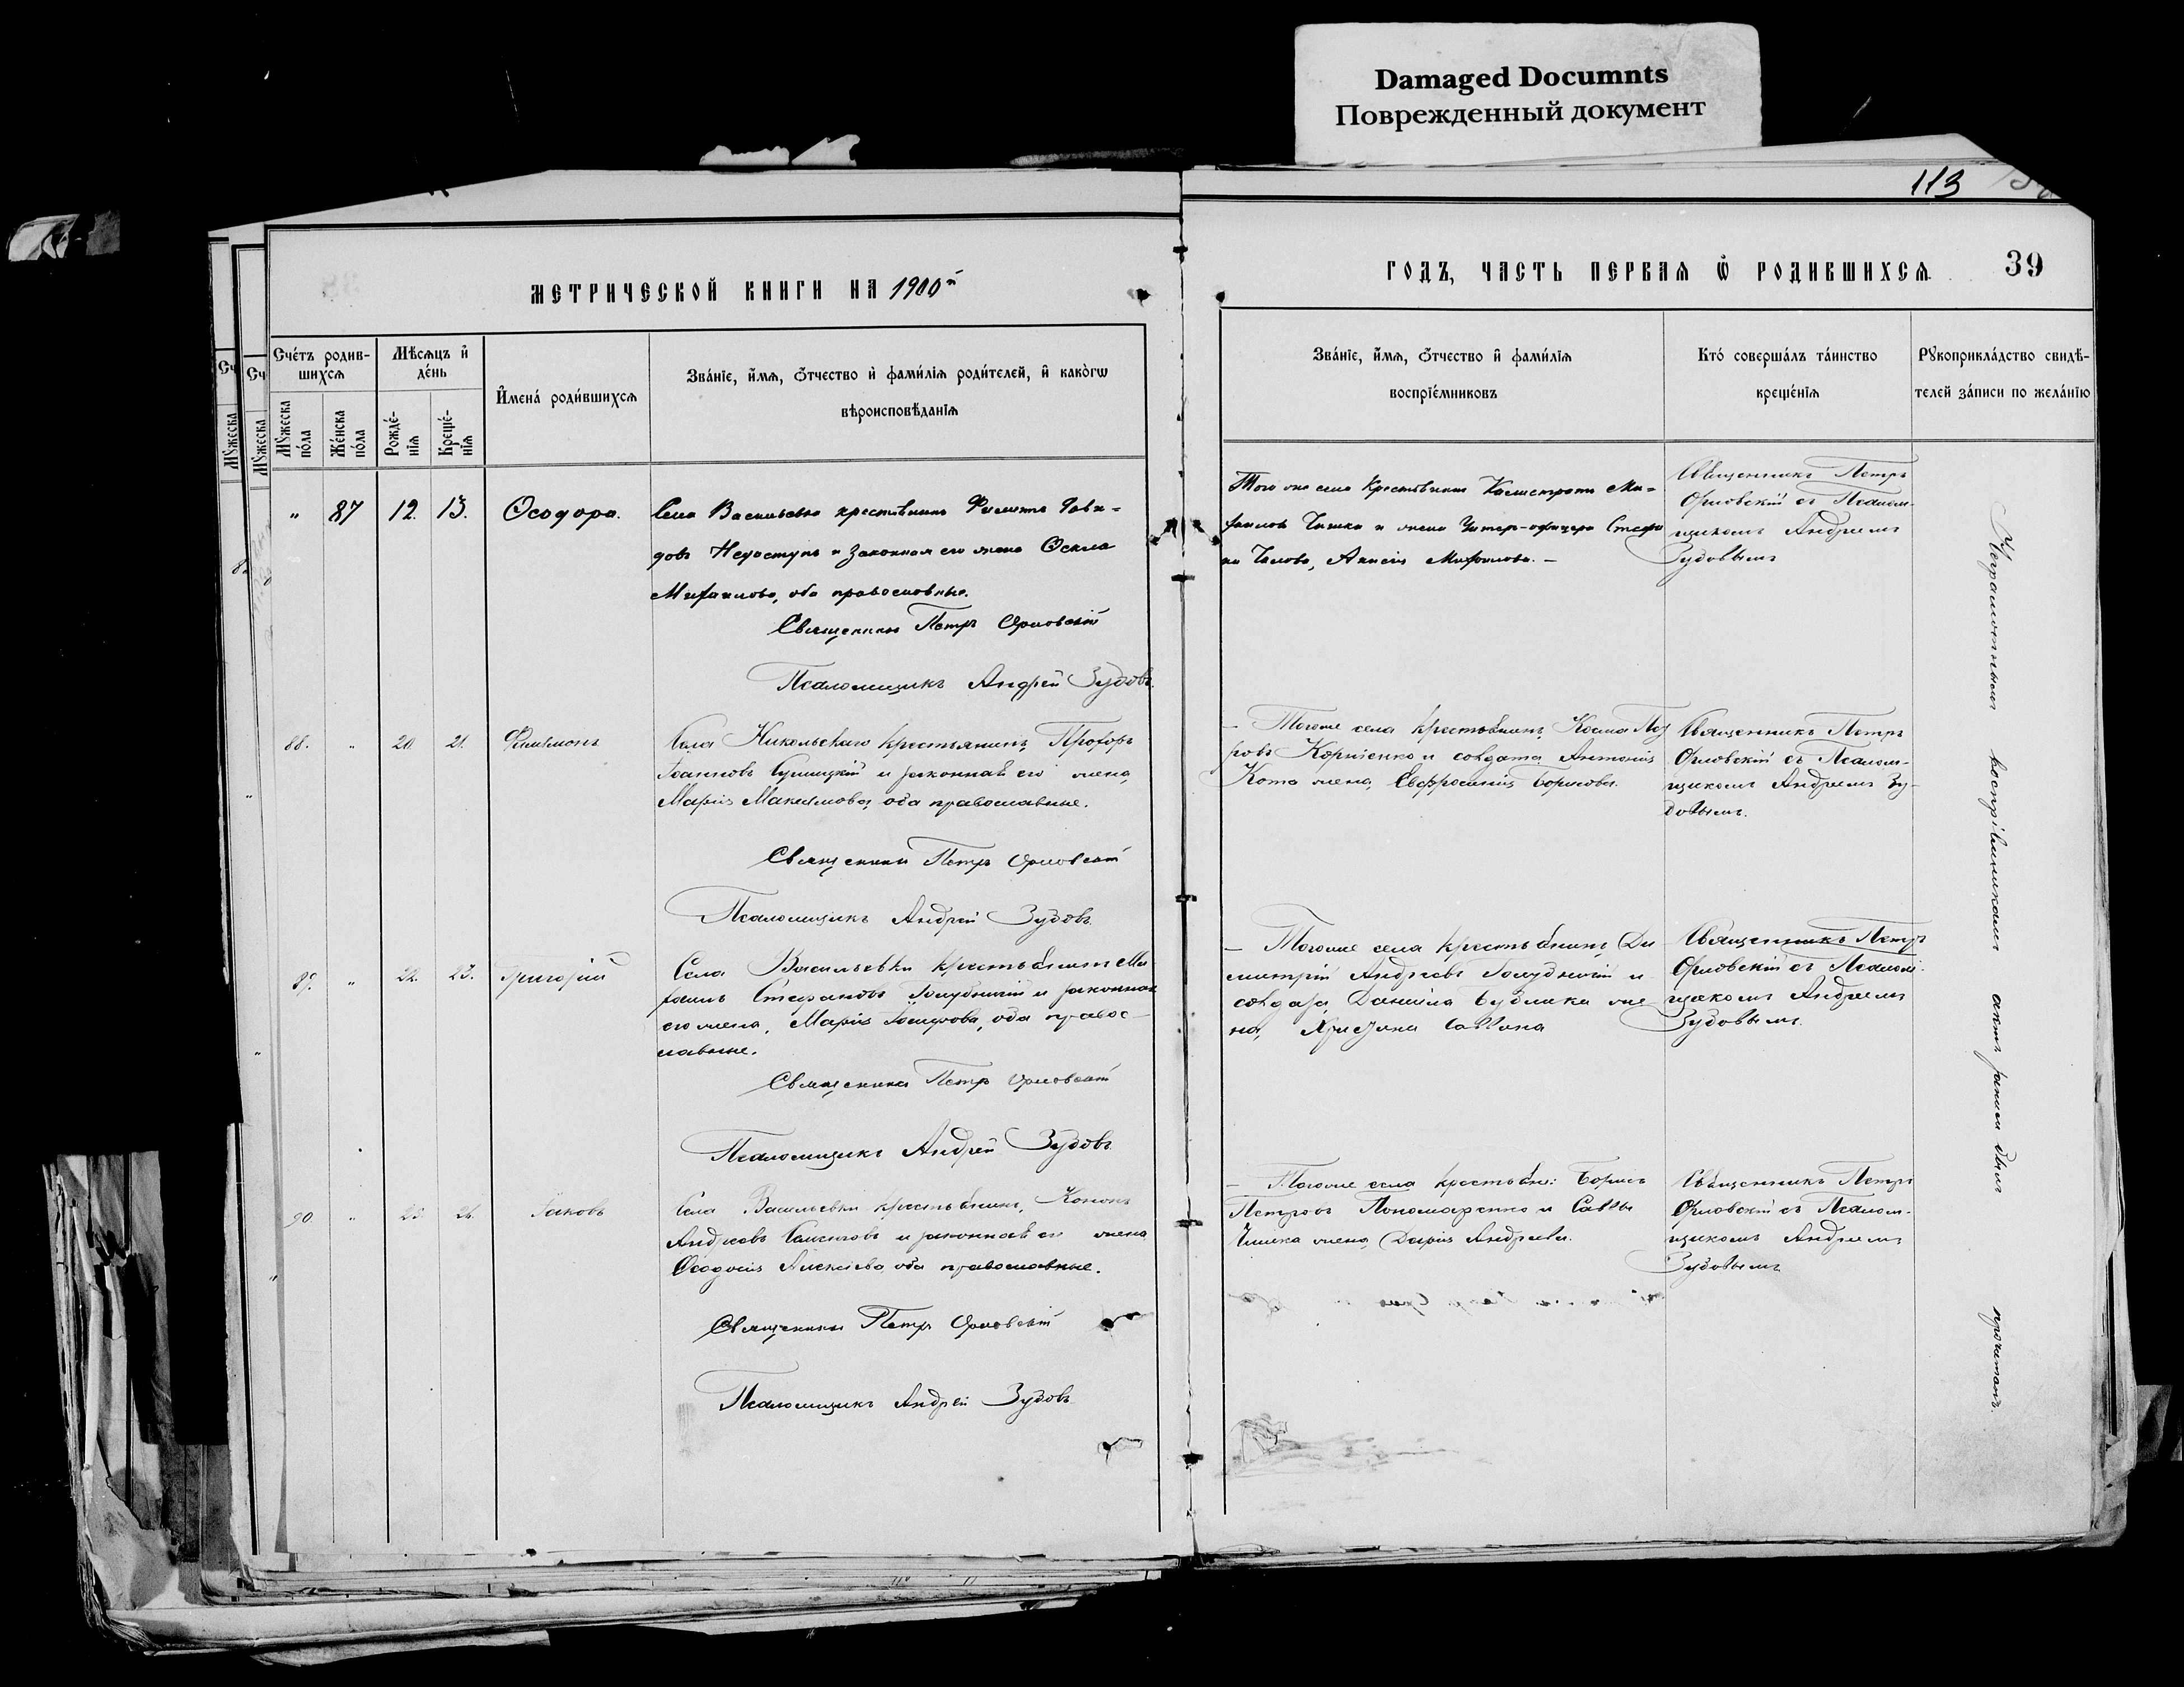 Damaged Documnts
Поврежденный документ
113
МЕТРИЧЕСКОЙ КНИГИ НА 1900й
ГОДЪ, ЧАСТЬ ПЕРВАЯ Ѿ РОДИВШИХСЯ
39
Сче́тъ родив-
шихсѧ
Мꙋжеска по́ла
Же́нска по́ла
Мѣсѧцъ и де́нь
Рожде́-нїѧ
Креще́-нїѧ
И҆мена̀ роди́вшихсѧ
Зва́нїе, и҆́мѧ, ѻ҆́тчество и҆ фами́лїѧ роди́телей, и҆ како́гѡ
вѣроисповѣ́данїѧ
Зва́нїе, и҆́мѧ, ѻ҆́тчество и҆ фами́лїѧ
воспрїе́мниковъ
Кто̀ соверша́лъ та́инство
креще́нїѧ
Рꙋкоприкла́дство свидѣ́-
телей за́писи по жела́нїю
" 87 12. 13. Ѳеодора.
Села Васильевки крестьянинъ Филиппъ Дави-
довъ Недоступъ и законная его жена
Михаилова, оба православные.
Священникъ Петръ Орловскій
Псаломщикъ Андрей Зудовъ.
Того же села крестьянинъ Калистратъ Ми-
хаиловъ Чижка и жена Унтер-офицера Стефа
на Михаилова. –
Священникъ Петръ
Орловскій съ Псалом-
щикомъ Андреемъ
Зудовымъ
88. " 20 21. Филимонъ
Села Никольскаго крестьянинъ Прохоръ
Іоанновъ и законная его жена
Марія Максимова, оба православные.
Священникъ Петръ Орловскій
Псаломщикъ Андрей Зудовъ.
– Тогоже села крестьянинъ Косма
Корніенко и солдата Антонія
Кота жена, Евфросинія Борисова.
Священникъ Петръ
Орловскій съ Псалом-
щикомъ Андреемъ Зу-
довымъ.
89. " 22. 23. Григорій
Села Васильевки крестьянинъ Ми
хаилъ Стефановъ Голубничій и законная
его жена, Марія Іосифова, оба правос-
лавные.
Священникъ Петръ Орловскій
Псаломщикъ Андрей Зудовъ.
– Тогоже села крестьянинъ Ди
митрій Андреевъ Голубничій и
солдата Даніила Бублика же
на, Христина Саввина
Священникъ Петръ
Орловскій съ Псалом-
щикомъ Андреемъ
Зудовымъ.
90. " 25. 26. Іаковъ
Села Васильевки крестьянинъ, Кононъ
Андреевъ и законная его жена
Ѳеодосія Алексіева оба православные.
Священникъ Петръ Орловскій
Псаломщикъ Андрей Зудовъ
– Тогоже села крестьян: Борисъ
Петровъ Пономаренко и Саввы
Чижка жена, Дарія Андреева.
Священникъ Петръ
Орловскій съ Псалом-
щикомъ Андреемъ
Зудовымъ.
Неграмотнымъ воспріемникамъ актъ записи былъ прочитанъ.